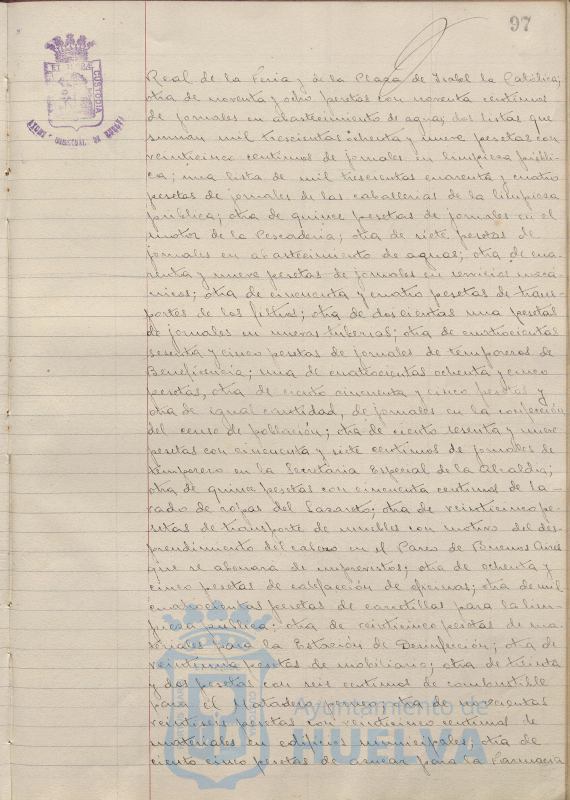 97
Real de la Feria y de la Plaza de Isabel la Católica;
otra de noventa y ocho pesetas con noventa centimos
de jornales en abastecimiento de agua; dos listas que
suman mil trescientas ochenta y nueve pesetas con
veinticinco centimos de jornales en limpieza públi-
ca; una lista de mil trescientas cuarenta y cuatro
pesetas de jornales de las caballerias de la limpieza
pública; otra de quince pesetas de jornales en el
motor de la Pescaderia; otra de siete pesetas de
jornales en abastecimiento de aguas; otra de cua-
renta y nueve pesetas de jornales en servicios mecá-
nicos; otra de cincuenta y cuatro pesetas de trans-
portes de los filtros; otra de doscientas una pesetas
de jornales en nuevas tuberias; otra de cuatrocientas
sesenta y cinco pesetas de jornales de temporeros de
Beneficencia; una de cuatrocientas ochenta y cinco
pesetas, otra de ciento cincuenta y cinco pesetas y
otra de igual cantidad, de jornales en la confección
del censo de población; otra de ciento sesenta y nueve
pesetas con cincuenta y siete centimos de jornales de
temporero en la Secretaria Especial de la Alcaldia;
otra de quince pesetas con cincuenta centimos de la-
vado de ropas del Lazareto; otra de veinticinco pe-
setas de transporte de muebles con motivo del des-
prendimiento del cabezo en el Paseo de Buenos Aires
que se abonara de imprevistos; otra de ochenta y
cinco pesetas de calefacción de oficinas; otra de mil
cuatrocientas pesetas de carretillas para la lim-
pieza publica; otra de veinticinco pesetas de ma-
teriales para la Estación de Desinfección; otra de
veintiuna pesetas de mobiliario; otra de treinta
y dos pesetas con seis centimos de combustible
para el Matadero; otra de novecientas
veintiseis pesetas con veinticinco centimos de
materiales en edificios municipales; otra de
ciento cinco pesetas de azucar para la Farmacia
CUSTODIA
Ayuntamiento de
HUELVA